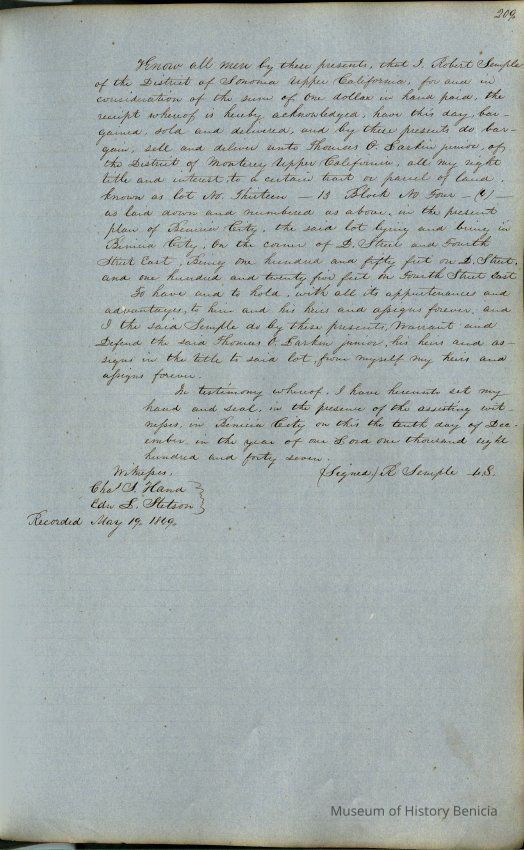 209
Know all men by these presents, that I, Robert Semple
of the District of Sonoma Upper California, for and in
consideration of the sum of One dollar in hand paid, the
receipt whereof is hereby acknowledged, have this day, bar-
gained, sold and delivered, and by these presents do bar-
gain, sell and deliver unto Thomas O. Larkin junior, of
the District of Monterey Upper California, all my right
title and interest, to a certain tract or parcel of land,
known as lot No. Thirteen — 13 Block No Four —
as laid down and numbered as above, in the present
plan of Benicia City, the said lot lying and being in
Benicia City, On the corner of D. Street and Fourth
Street East, Being one hundred and fifty feet on D. Street,
and one hundred and twenty five feet on Fourth Street East
To have and to hold, with all its appurtenances and
advantages, to him and his heirs and assigns forever, and
I the said Semple do by these presents, Warrant and
Defend the said Thomas O. Larkin junior, his heirs and as-
signs in the title to said lot, from myself my heirs and
assigns forever.
In testimony whereof, I have hereunto set my
hand and seal, in the presence of the assisting wit-
nesses, in Benicia City on this the tenth day of Dec-
ember in the year of our Lord one thousand eight
hundred and forty seven.
Witnesses, (Signed) R Semple L.S.
Chas S. Hand
Edw L. Stetson
Recorded May 19, 1849,
Museum of History Benicia